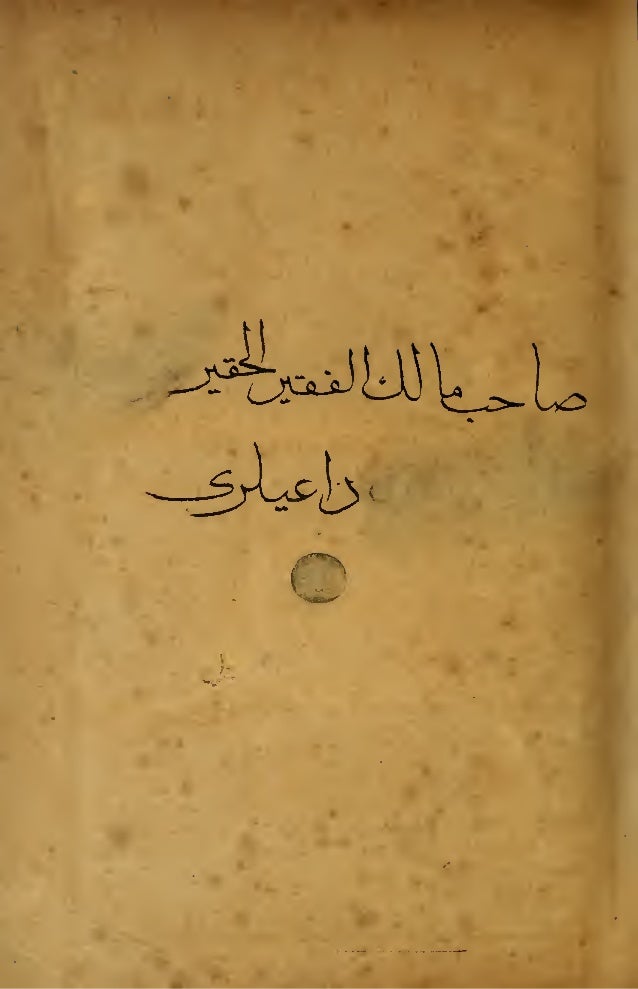 صاحب مالك الفقير الحقير
داعيلرى